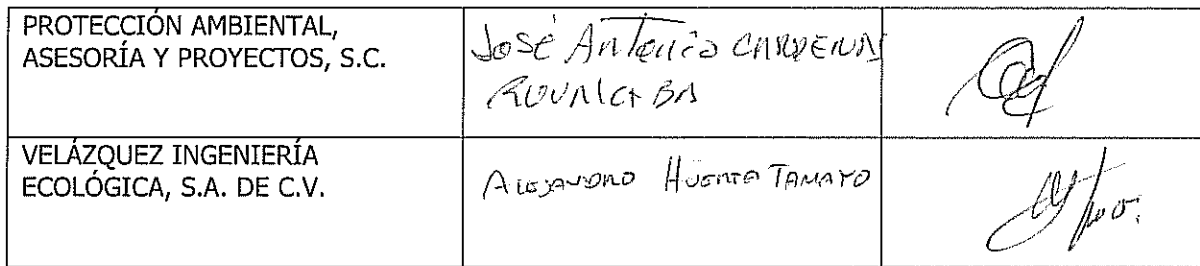 PROTECCIÓN AMBIENTAL,
ASESORÍA Y PROYECTOS, S.C.
José Antonio CARDENAS
VELÁZQUEZ INGENIERÍA
ECOLÓGICA, S.A. DE C.V.
ALEJANDRO HUERTA TAMAYO